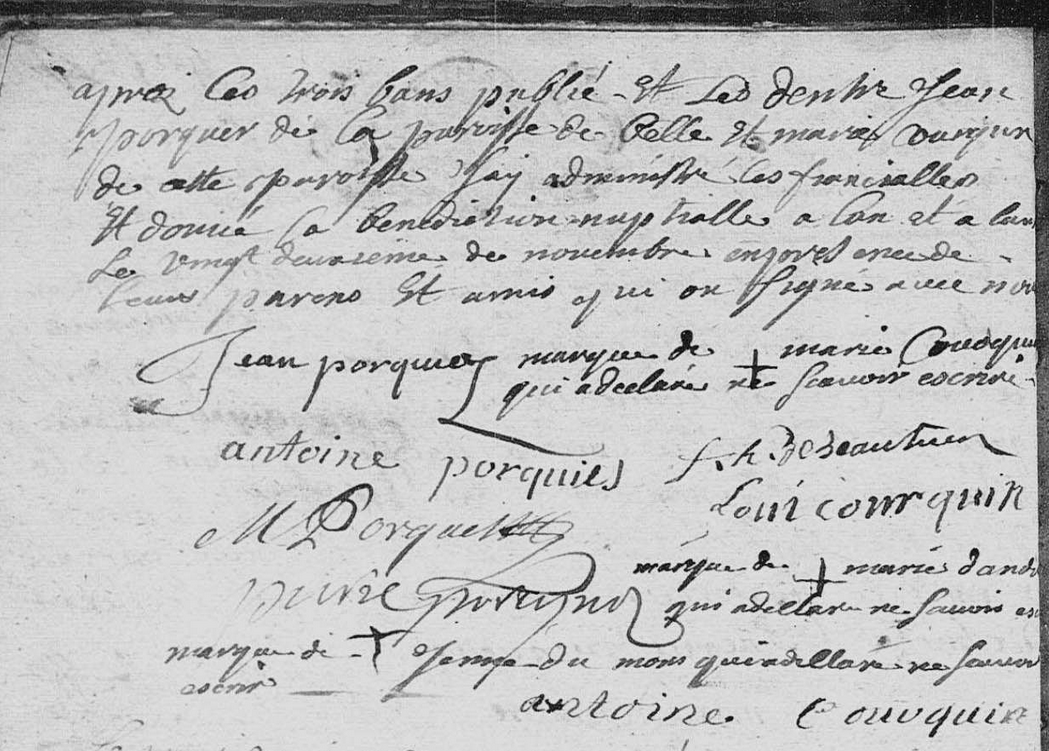 aprez les trois bans publié Et Led dentre Jean
porquer de la parroisse de Celle Et marie Courquin
de cette paroisse Jay administré les fiancialles
Et donné la benediction nuptialle a lun et a lau
Le vingt deuxieme de novembre en presence de
leurs parens Et amis qui on signé avec nou
Jean porquier marque de + marie Couoqui
qui a declaré ne scavoir escrire
antoine porquies
Loui courquin
M Porquet
marque de + marie dand
pierre
qui a declare ne savoir es
marque de + du mons qui a dellaré ne savoir
escrir
antoine Couoquin